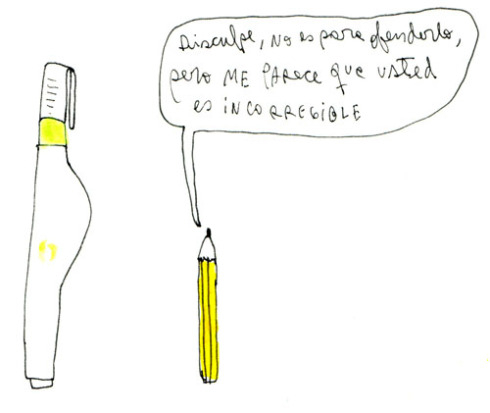 Disculpe, no es para ofenderlo,
pero ME PARECE que usted
es INCORREGIBLE